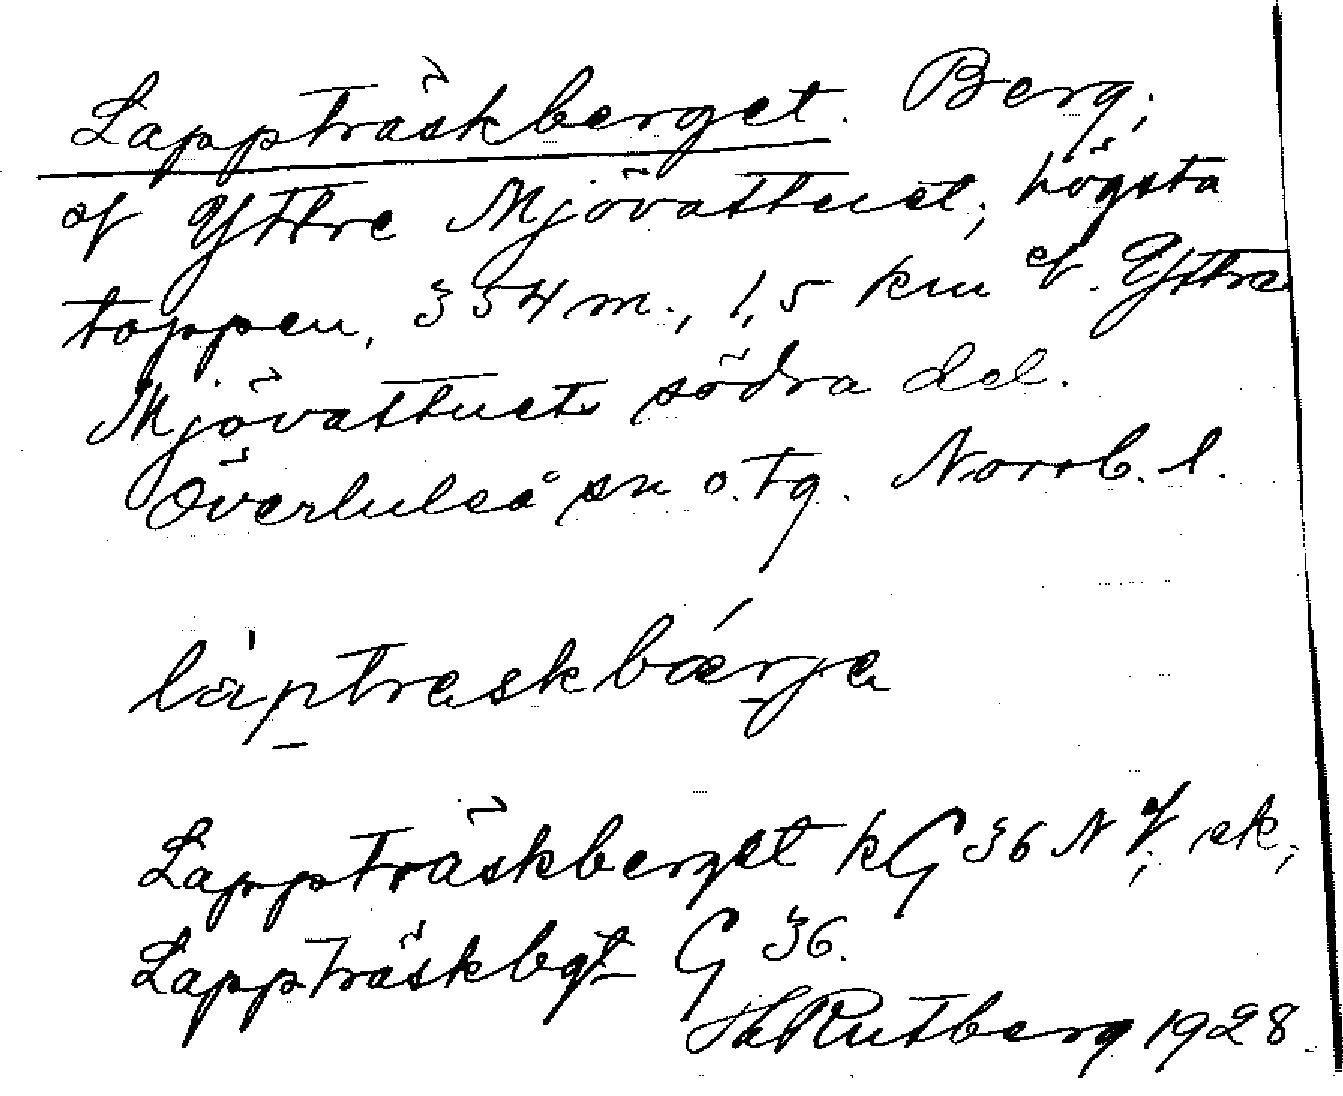 Lappträskberget. Berg,
v Yttre Mjövattnet, högsta
toppen, 354 m., 1,5 km v. Yttre
Mjövattnets södra del.
Överluleå sn o. tg. Norrb. l.
låptraskbærja
Lappträskberget kG 36 NV, ek,
Lappträskbgt G 36.
HRutberg 1928